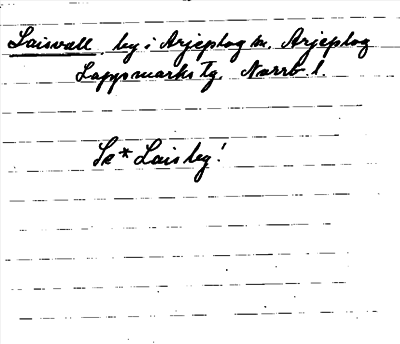 Laisvall by i Arjeplog sn. Arjeplog
Lappmarks Tg. Norrb. l.
Se* Laisby!